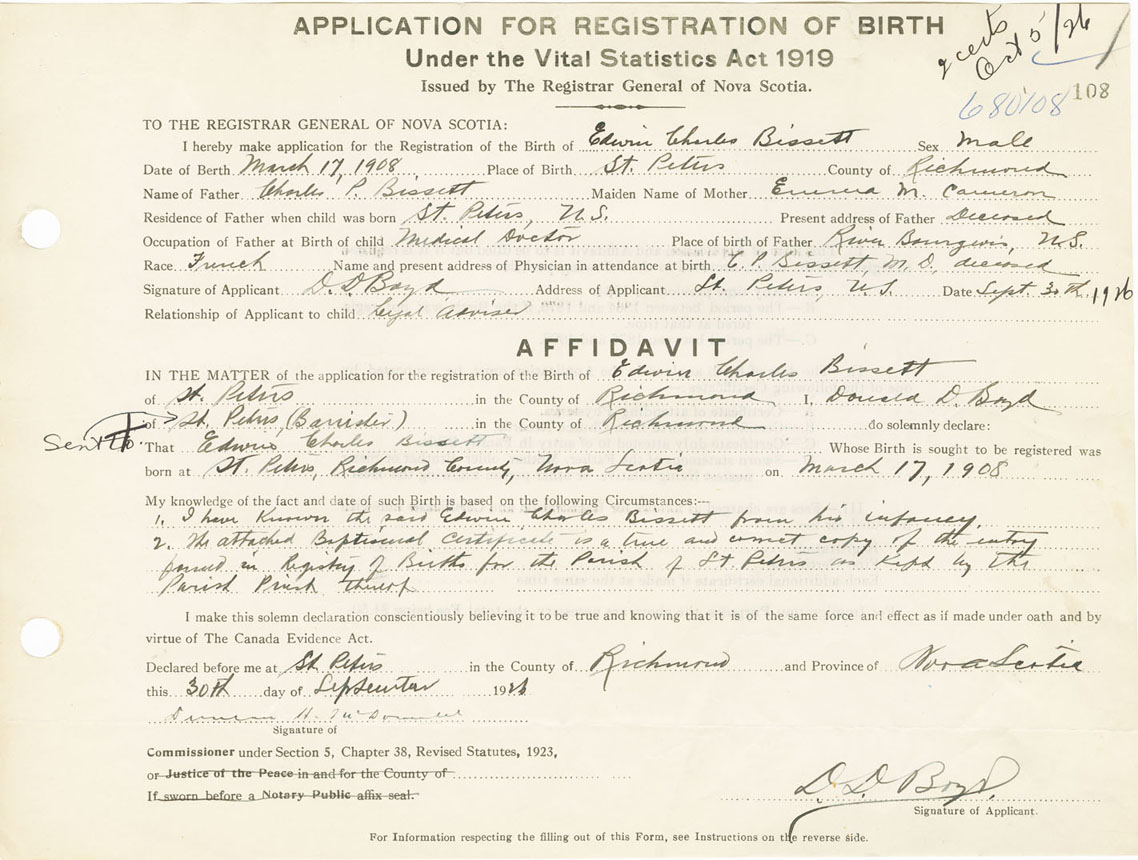 APPLICATION FOR REGISTRATION OF BIRTH
2 certs Oct 5/26
Under the Vital Statistics Act 1919
Issued by The Registrar General of Nova Scotia.
680108 108
TO THE REGISTRAR GENERAL OF NOVA SCOTIA:
I hereby make application for the Registration of the Birth of Edwin Charles Bissett Sex Male
Date of Berth March 17, 1908 Place of Birth St. Peters County of Richmond
Name of Father Charles P. Bissett Maiden Name of Mother Emma M. Cameron
Residence of Father when child was born St. Peters, N.S. Present address of Father Deceased
Occupation of Father at Birth of child Medical Doctor Place of birth of Father River Bourgeois, N.S.
Race French Name and present address of Physician in attendance at birth C. P. Bissett, M.D, deceased
Signature of Applicant D. D Boyd Address of Applicant St. Peters, N.S Date Sept. 30th, 1926
Relationship of Applicant to child Legal Adviser
AFFIDAVIT
IN THE MATTER of the application for the registration of the Birth of Edwin Charles Bissett
of St. Peters in the County of Richmond I, Donald D. Boyd
of St. Peters, (Barrister) in the County of Richmond do solemnly declare:
Sent to
That Edwin Charles Bissett Whose Birth is sought to be registered was
born at St. Peters, Richmond County, Nova Scotia on March 17, 1908
My knowledge of the fact and date of such Birth is based on the following Circumstances:--
1. I have Known the said Edwin Charles Bissett from his infancy.
2. The attached Baptismal Certificate is a true and correct copy of the entry
found in Registry of Births for the Parish of St Peters as Kept by the
Parish Priest thereof
I make this solemn declaration conscientiously believing it to be true and knowing that it is of the same force and effect as if made under oath and by
virtue of The Canada Evidence Act.
Declared before me at St Peters in the County of Richmond and Province of Nova Scotia
this 30th day of September 1926
Duncan H. McDonnell
Signature of
Commissioner under Section 5, Chapter 38, Revised Statutes, 1923,
or Justice of the Peace in and for the County of
If sworn before a Notary Public affix seal.
D. D Boyd.
Signature of Applicant.
For Information respecting the filling out of this Form, see Instructions on the reverse side.